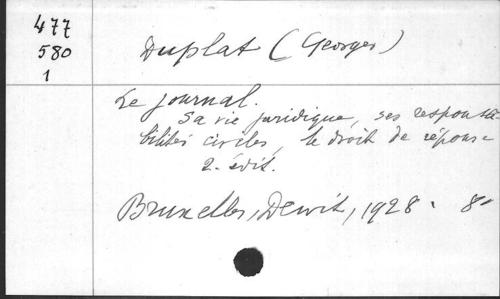 477
580
1
Duplat (Georges)
Le journal.
Sa vie juridique, ses responsa-
bilités civiles, le droit de réponse
2. édit.
Bruxelles, Dewit, 1928. 8º